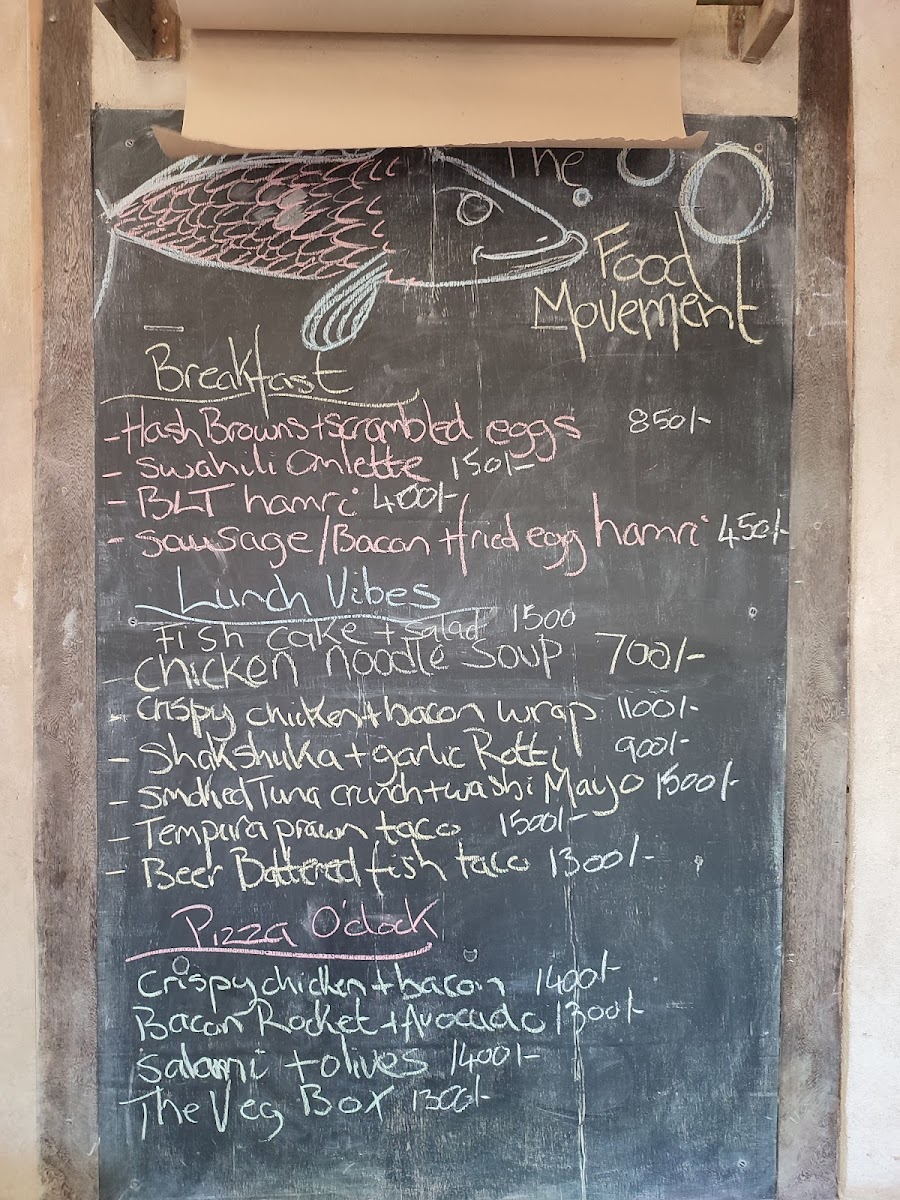 The
Food
Movement
Breakfast
- Hash Browns + scrambled eggs 850/-
- Swahili Omlette 150/-
- BLT hamri 400/-
- Sausage/Bacon + fried egg hamri 450/-
Lunch Vibes
Fish cake + salad 1500
- Chicken noodle soup 700/-
- Crispy chicken + bacon wrap 1100/-
- Shakshuka + garlic Rotti 900/-
- Smoked Tuna crunch + washi Mayo 1500/-
- Tempura prawn taco 1500/-
- Beer Battered fish taco 1300/-
Pizza O'clock
Crispy chicken + bacon 1400/-
Bacon Rocket + Avocado 1300/-
Salami + olives 1400/-
The Veg Box 1300/-